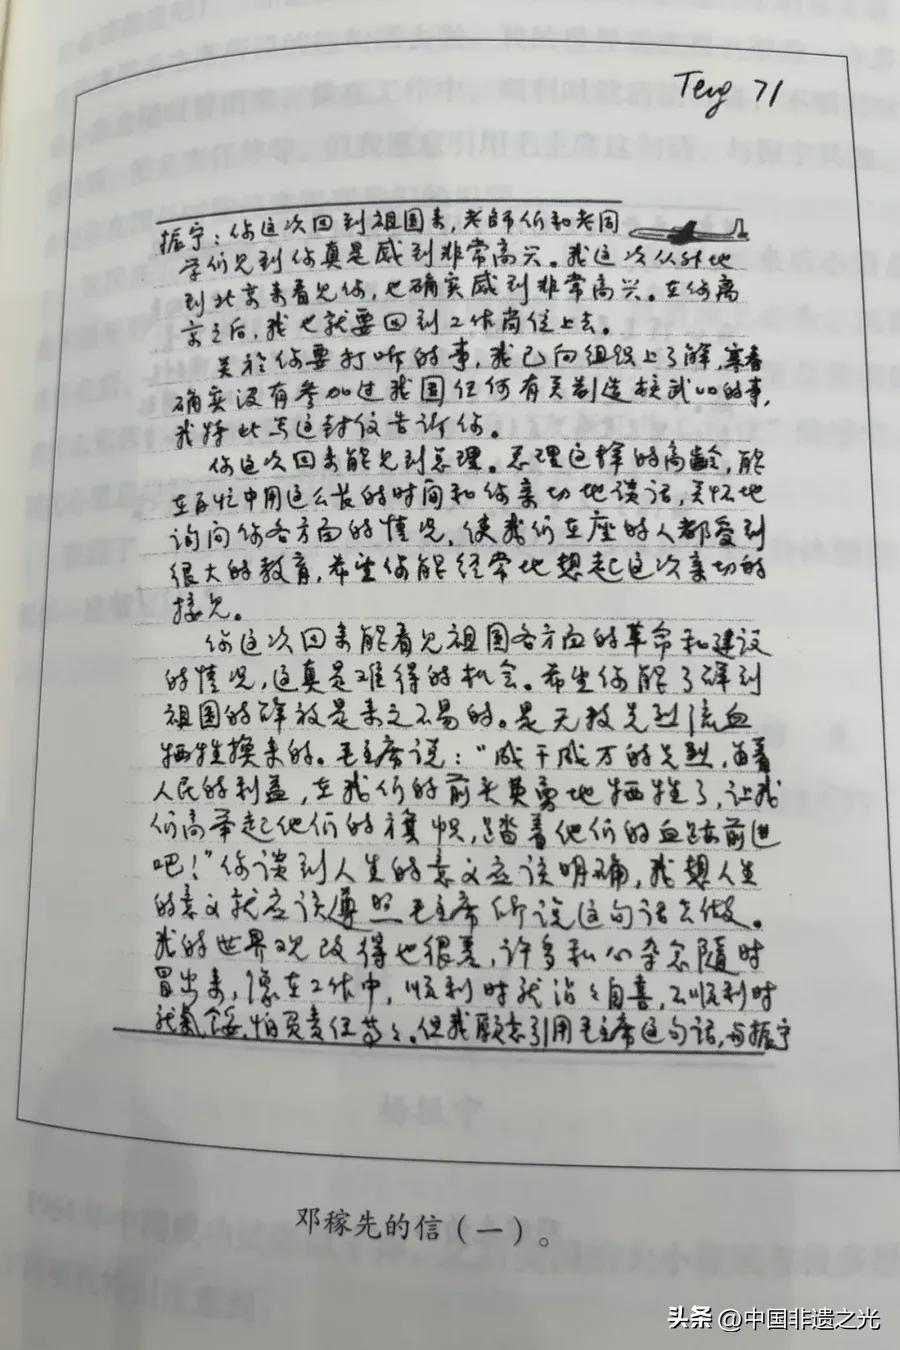 Teng 71
振宁：你这次回到祖国来，老师们和老同
学们见到你真是感到非常高兴。我这次从外地
到北京来看见你，也确实感到非常高兴。在你离
京之后，我也就要回到工作岗位上去。
关於你要打听的事，我已向组织上了解，寒春
确实没有参加过我国任何有关制造核武器的事，
我特此写这封信告诉你。
你这次回来能见到总理。总理这样的高龄，能
在百忙中用这么长的时间和你亲切地谈话，关怀地
询问你各方面的情况，使我们在座的人都受到
很大的教育，希望你能经常地想起这次亲切的
接见。
你这次回来能看见祖国各方面的革命和建设
的情况，这真是难得的机会。希望你能了解到
祖国的解放是来之不易的。是无数先烈流血
牺牲换来的。毛主席说：“成千成万的先烈，为着
人民的利益，在我们的前头英勇地牺牲了，让我
们高举起他们的旗帜，踏着他们的血迹前进
吧！”你谈到人生的意义应该明确，我想人生
的意义就应该遵照毛主席所说这句话去做。
我的世界观改得也很差，许多私心杂念随时
冒出来，像在工作中，顺利时就沾沾自喜，不顺利时
就气馁，怕负责任等等。但我愿意引用毛主席这句话，与振宁
邓稼先的信（一）。
头条 @中国非遗之光